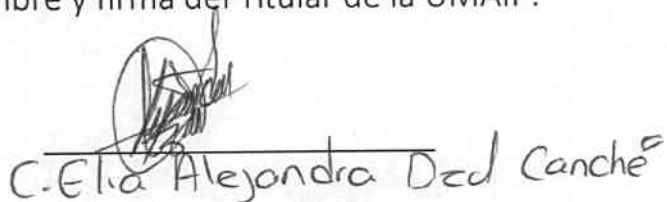 bre y firma del Titular de la UMAIP.
C. Elia Alejandra Dzul Canché